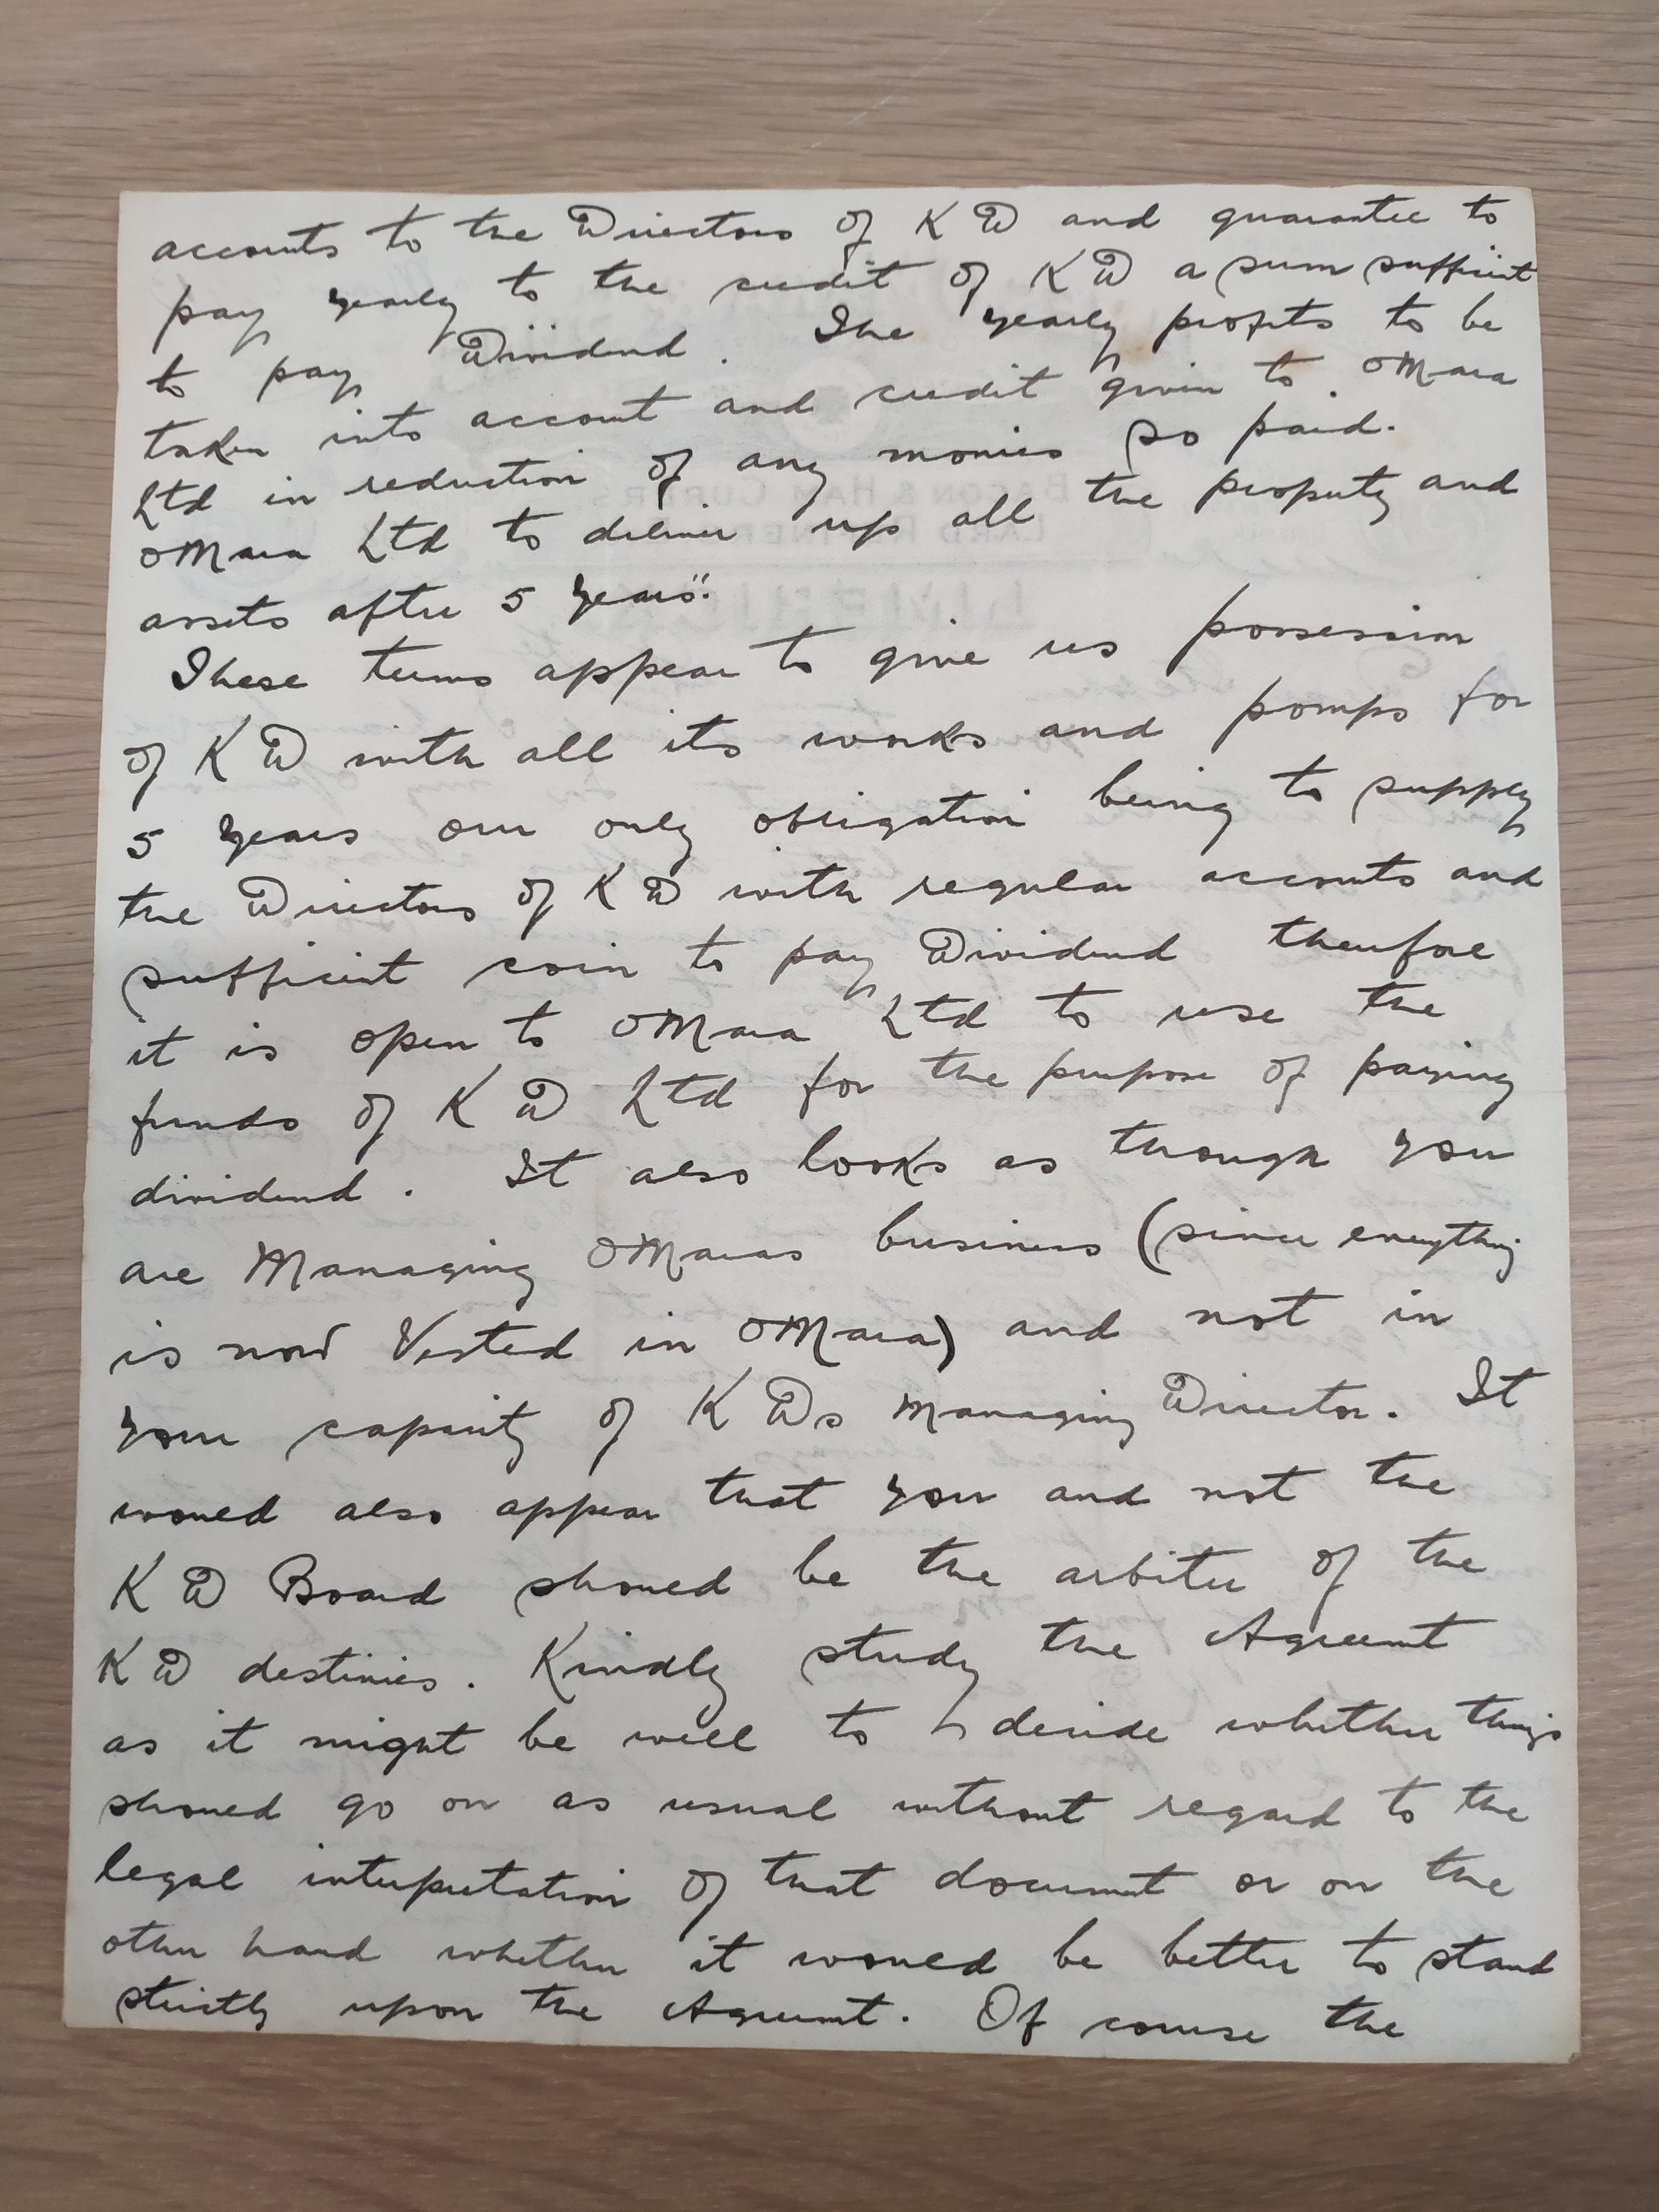 accounts to the Directors of K D and guarantee to
pay yearly to the credit of K D a sum sufficient
to pay Dividend. The yearly profits to be
taken into account and credit given to OMara
Ltd in reduction of any monies so paid.
OMara Ltd to deliver up all the property and
assets after 5 years".
These terms appear to give us possession
of K D with all its works and pomps for
5 years our only obligation being to supply
the Directors of K D with regular accounts and
sufficient coin to pay Dividend therefore
it is open to OMara Ltd to use the
funds of K D Ltd for the purpose of paying
dividend. It also looks as though you
are Managing OMaras business (since everything
is now Vested in OMara) and not in
your capacity of K Ds Managing Director. It
would also appear that you and not the
K D Board should be the arbiter of the
K D destinies. Kindly study the Agreement
as it might be well to decide whether things
should go on as usual without regard to the
legal interpretation of that document or on the
other hand whether it would be better to stand
strictly upon the Agreement. Of course the
BACON & HAM CURERS